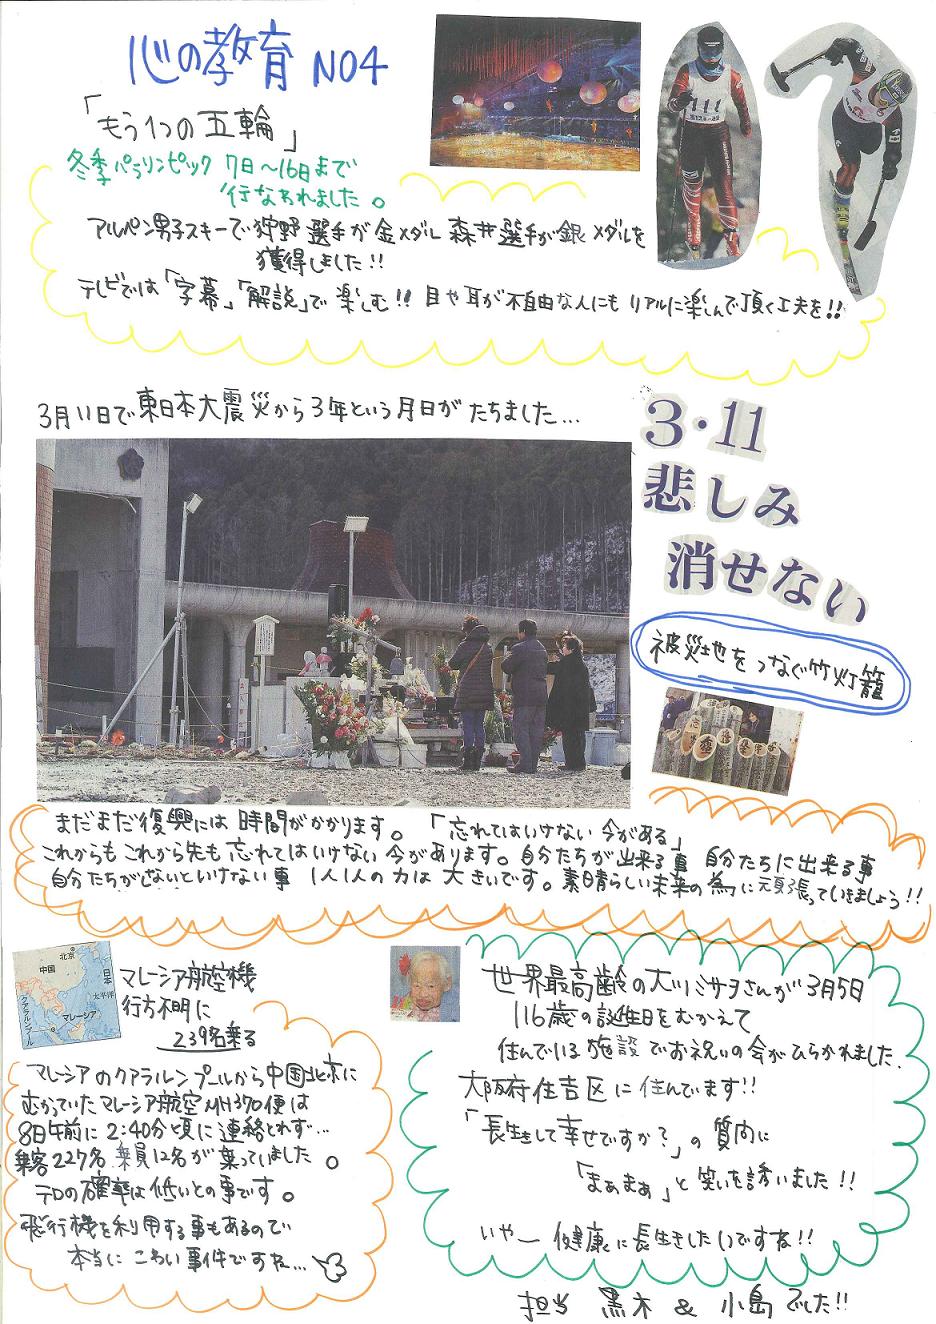 心の教育 NO4
「もう1つの五輪」
冬季パラリンピック 7日～16日まで
行なわれました。
アルペン男子スキーで狩野選手が金メダル 森井選手が銀メダルを
獲得しました!!
テレビでは「字幕」「解説」で楽しむ!! 目や耳が不自由な人にもリアルに楽しんで頂く工夫を!!
111
3月11日で東日本大震災から3年という月日がたちました...
3・11
悲しみ
消せない
被災地をつなぐ竹灯籠
まだまだ復興には時間がかかります。「忘れてはいけない今がある」
これからもこれから先も忘れてはいけない今があります。自分たちが出来る事 自分たちに出来る事
自分たちがしないといけない事 1人1人の力は大きいです。素晴らしい未来の為に頑張っていきましょう!!
北京
中国
日本
太平洋
マレーシア
クアラルンプール
マレーシア航空機
行方不明に
239名乗る
マレーシアのクアラルンプールから中国北京に
むかっていたマレーシア航空MH370便は
8日午前に2:40分頃に連絡とれず...
乗客227名 乗員12名が乗っていました。
テロの確率は低いとの事です。
飛行機を利用する事もあるので
本当にこわい事件ですね...
世界最高齢の大川ミサヲさんが3月5日
116歳の誕生日をむかえて
住んでいる施設でお祝いの会がひらかれました.
大阪府住吉区に住んでます!!
「長生きして幸せですか?」の質問に
「まぁまぁ」と笑いを誘いました!!
いやー健康に長生きしたいですね!!
担当 黒木 & 小島でした!!